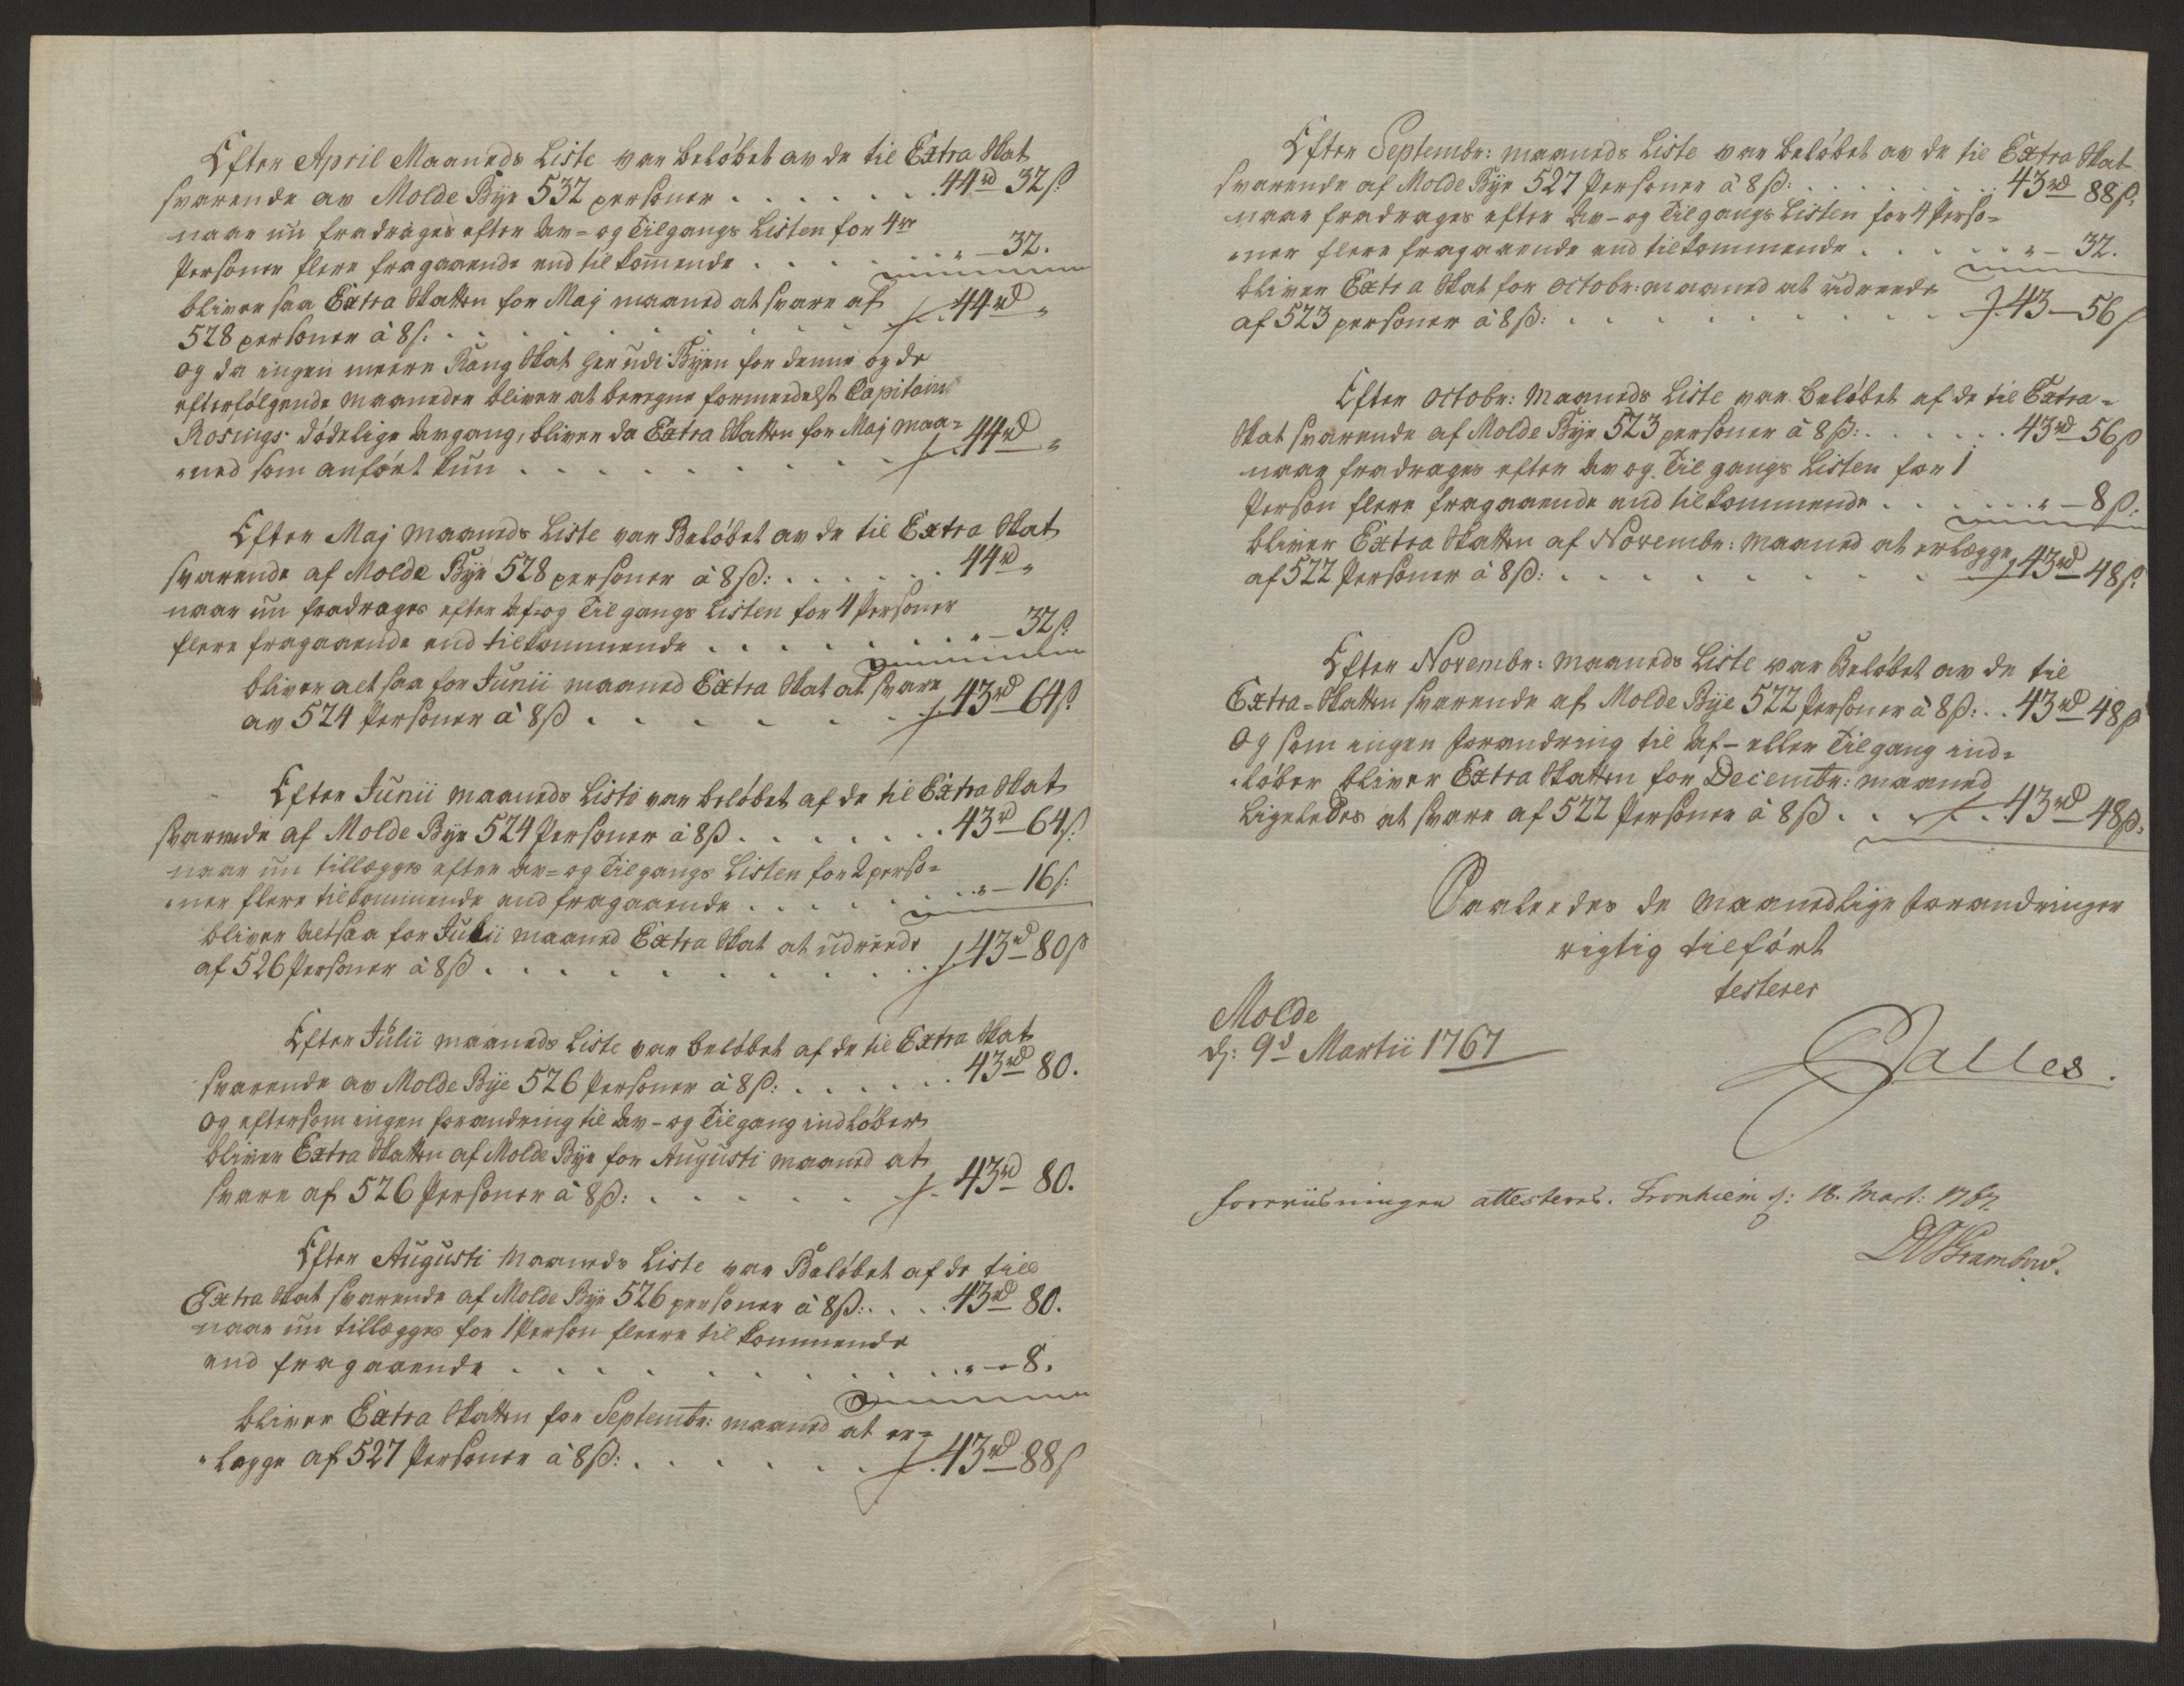 Efter April Maaneds Liste var beløbet av de til Extra Skat
svarende av Molde Bye 532 personer . . . . . . 44rd 32s:
naar nu fradrages efter Av= og Tilgangs Listen for 4re
Personer flere fragaaende end tilkom̄ende . . . . . . „ – 32.
bliver saa Extra Skatten for Maj maaned at svare af
528 personer à 8s: . . . . . . . . 44rd „
og da ingen meere Rang Skat her udi Byen for denne og de
efterfølgende maaneder bliver at beregne formedelst Capitain
Rosings dødelige Avgang, bliver da Extra Skatten for Maj maa=
„ned som anført kun . . . . . . . . 44rd „
Efter Maj maaneds Liste var Beløbet av de til Extra Skat
svarende af Molde Bye 528 personer à 8s: . . . . . . 44rd „
naar nu fradrages efter Af- og Tilgangs Listen for 4 Personer
flere fragaaende end tilkommende . . . . . . . „ – 32s:
bliver altsaa for Junii maaned Extra Skat at svare
av 524 Personer à 8s . . . . . . . 43rd 64s:
Efter Junii maaneds Liste var beløbet af de til Extra Skat
svarende af Molde Bye 524 Personer à 8s . . . . . . 43rd 64s:
naar nu tillægges efter Av= og Tilgangs Listen for 2 perso=
„ner flere tilkommende end fragaaende . . . . . . „ – 16s:
bliver altsaa for Julii maaned Extra Skat at udreede
af 526 Personer à 8s . . . . . . . . . 43rd 80s
Efter Julii maaneds Liste var beløbet af de til Extra Skat
svarende av Molde Bye 526 Personer à 8s: . . . . . . 43rd 80.
og eftersom ingen forandring til Av- og Tilgang indløber
bliver Extra Skatten af Molde Bye for Augusti maaned at
svare af 526 Personer à 8s: . . . . . . . 43rd 80.
Efter Augusti Maaneds Liste var Beløbet af de till
Extra Skat svarende af Molde Bye 526 personer à 8s: . . . 43rd 80.
naar nu tillægges for 1 Person fleere tilkommende
end fragaaende . . . . . . . . . . „ – 8.
bliver Extra Skatten for Septembr: maaned at er=
„lægge af 527 Personer à 8s: . . . . . . . 43rd 88s
Efter Septembr: maaneds Liste var beløbet av de til Extra Skat
svarende af Molde Bye 527 Personer à 8s: . . . . . . 43rd 88s:
naar fradrages efter Av- og Tilgangs Listen for 4 Perso=
„ner flere fragaaende end tilkommende . . . . . „ – 32.
bliver Extra Skat for Octobr: maaned at udreede
af 523 personer à 8s: . . . . . . . . . 43 – 56s
Efter Octobr: Maaneds Liste var beløbet af de til Extra=
Skat svarende af Molde Bye 523 personer à 8s: . . . . . 43rd 56s
naar fradrages efter Av og Tilgangs Listen for 1
Person flere fragaaende end tilkommende . . . . . . „ – 8s:
bliver Extra Skatten af Novembr: Maaned at erlægge
af 522 Personer à 8s: . . . . . . . . 43rd 48s:
Efter Novembr: Maaneds Liste var Beløbet av de til
Extra=Skatten svarende af Molde Bye 522 Personer à 8s: . . 43rd 48s
og som ingen forandring til Af- eller Tilgang ind=
„løber bliver Extra Skatten for Decembr: maaned
Ligeledes at svare af 522 Personer à 8s . . . . 43rd 48s:
Saaledes de maanedlige forandringer
rigtig tilført
testerer
Molde
d: 9d Martii 1767
Salles.
foreviisningen attesteres. Tronhiem d: 18. Mart: 1767.